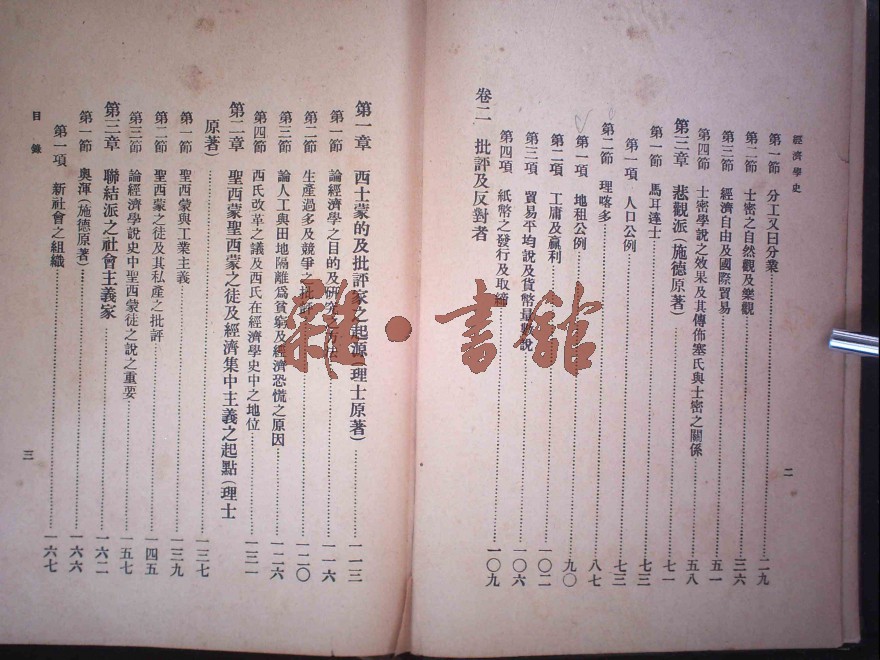 經濟學史
第一節 分工又曰分業……二九
第二節 士密之自然觀及樂觀……三六
第三節 經濟自由及國際貿易……五一
第四節 士密學說之效果及其傳佈塞氏與士密之關係……五八
第三章 悲觀派(施德原著)……七一
第一節 馬耳達士……七三
第一項 人口公例……七三
第二節 理喀多……八七
第一項 地租公例……九〇
第二項 工庸及贏利……一〇二
第三項 貿易平均說及貨幣量數說……一〇六
第四項 紙幣之發行及取締……一〇九
卷二 批評及反對者
二
第一章 西士蒙的及批評家之起源(理士原著)……一一三
第一節 論經濟學之目的及研究之方法……一一六
第二節 生產過多及競爭之批評……一二〇
第三節 論人工與田地隔離爲貧窮及經濟恐慌之原因……一二六
第四節 西氏改革之議及西氏在經濟學史中之地位……一三一
第二章 聖西蒙聖西蒙之徒及經濟集中主義之起點(理士
原著)……一三七
第一節 聖西蒙與工業主義……一三九
第二節 聖西蒙之徒及其私產之批評……一四五
第三節 論經濟學說史中聖西蒙徒之說之重要……一五七
第三章 聯結派之社會主義家……一六二
第一節 奧渾(施德原著)……一六六
第一項 新社會之組織……一六七
目錄
三
雜·書館